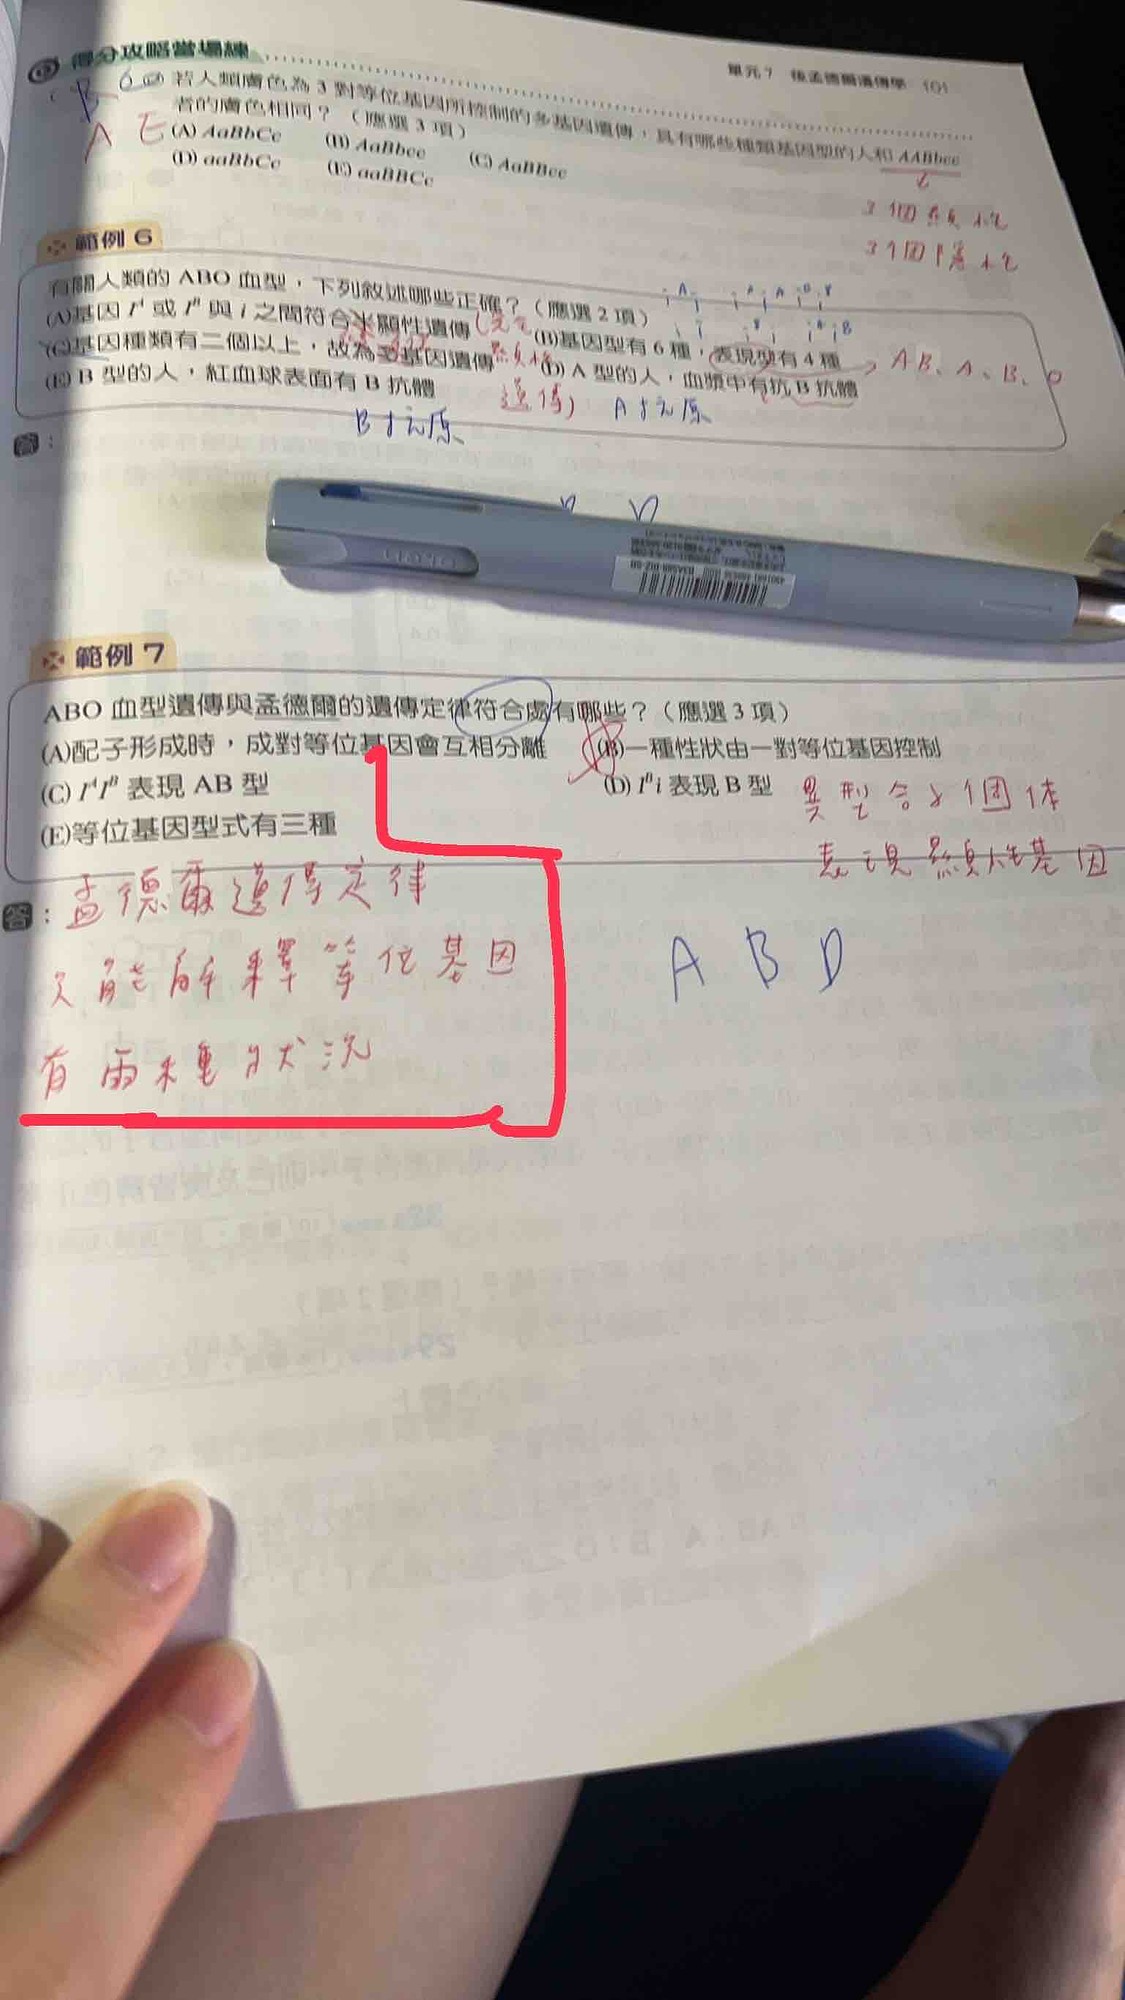 得分攻略當場練
單元7 後孟德爾遺傳學 101
若人類膚色為3對等位基因所控制的多基因遺傳，具有哪些種類基因型的人和AABbcc
者的膚色相同？（應選3項）
B
A E
(A) AaBbCc (B) AaBbcc (C) AaBBcc
(D) aaBbCc (E) aaBBCc
3個顯性
3個隱性
範例6
有關人類的ABO血型，下列敘述哪些正確？（應選2項）
(A)基因Iᴬ或Iᴮ與i之間符合半顯性遺傳 (B)基因型有6種，表現型有4種
AB、A、B、O
(C)基因種類有二個以上，故為多基因遺傳 (D) A型的人，血漿中有抗B抗體
(E) B型的人，紅血球表面有B抗體
遺傳) A抗原
B抗原
答：
範例7
ABO血型遺傳與孟德爾的遺傳定律符合處有哪些？（應選3項）
(A)配子形成時，成對等位基因會互相分離 (B)一種性狀由一對等位基因控制
(C) IᴬIᴮ表現AB型 (D) Iᴮi表現B型
異型合子個體
(E)等位基因型式有三種
表現顯性基因
答：孟德爾遺傳定律
只能解釋等位基因
有兩種狀況
A B D